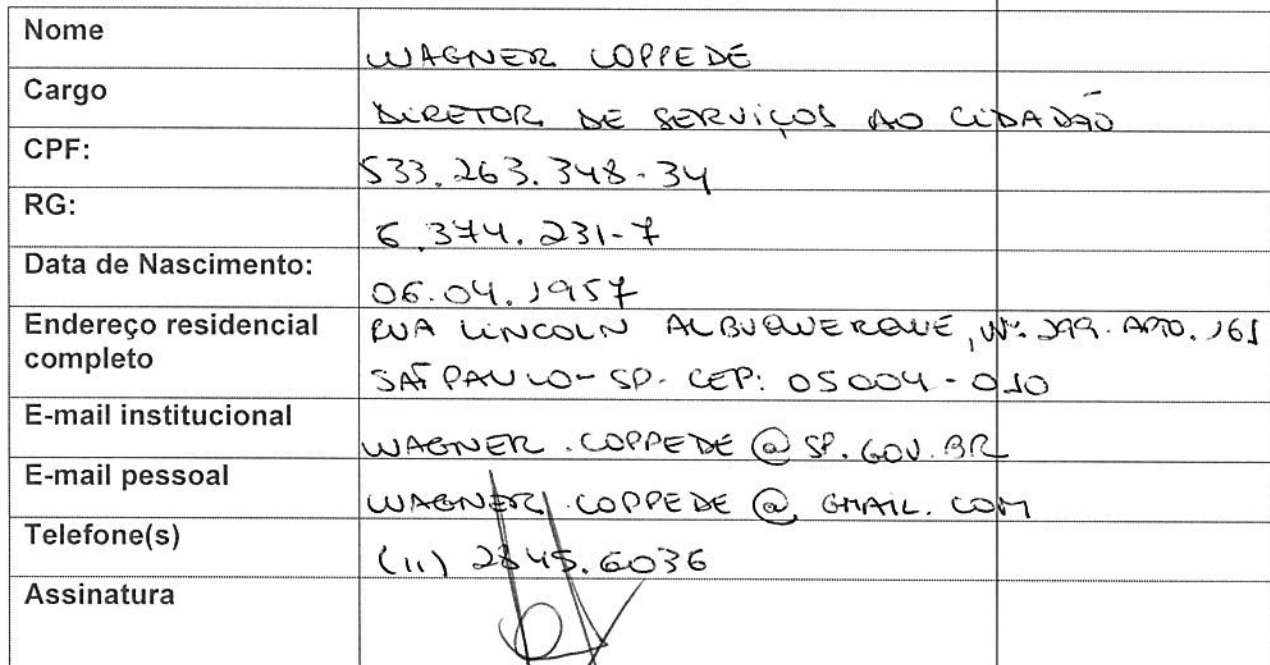 Nome WAGNER COPPEDE
Cargo DIRETOR DE SERVIÇOS AO CIDADÃO
CPF: 533.263.348-34
RG: 6.374.231-7
Data de Nascimento: 06.04.1957
Endereço residencial completo RUA LINCOLN ALBUQUERQUE, Nº. 299. APTO. 161
SÃO PAULO - SP. CEP: 05004-010
E-mail institucional WAGNER.COPPEDE@SP.GOV.BR
E-mail pessoal WAGNER.COPPEDE@GMAIL.COM
Telefone(s) (11) 2845.6036
Assinatura